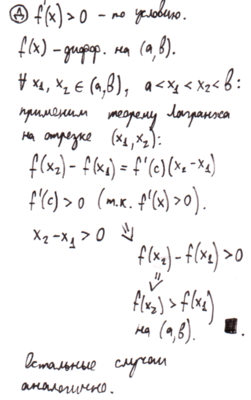 Д f'(x) > 0 - по условию.
f(x) - дифф. на (a,b).
∀ x₁, x₂ ∈ (a,b), a < x₁ < x₂ < b:
применим теорему Лагранжа
на отрезке (x₁, x₂):
f(x₂) - f(x₁) = f'(c)(x₂ - x₁)
f'(c) > 0 (т.к. f'(x) > 0).
x₂ - x₁ > 0 ⇓
f(x₂) - f(x₁) > 0
⇓
f(x₂) > f(x₁)
на (a,b). ■.
Остальные случаи
аналогично.